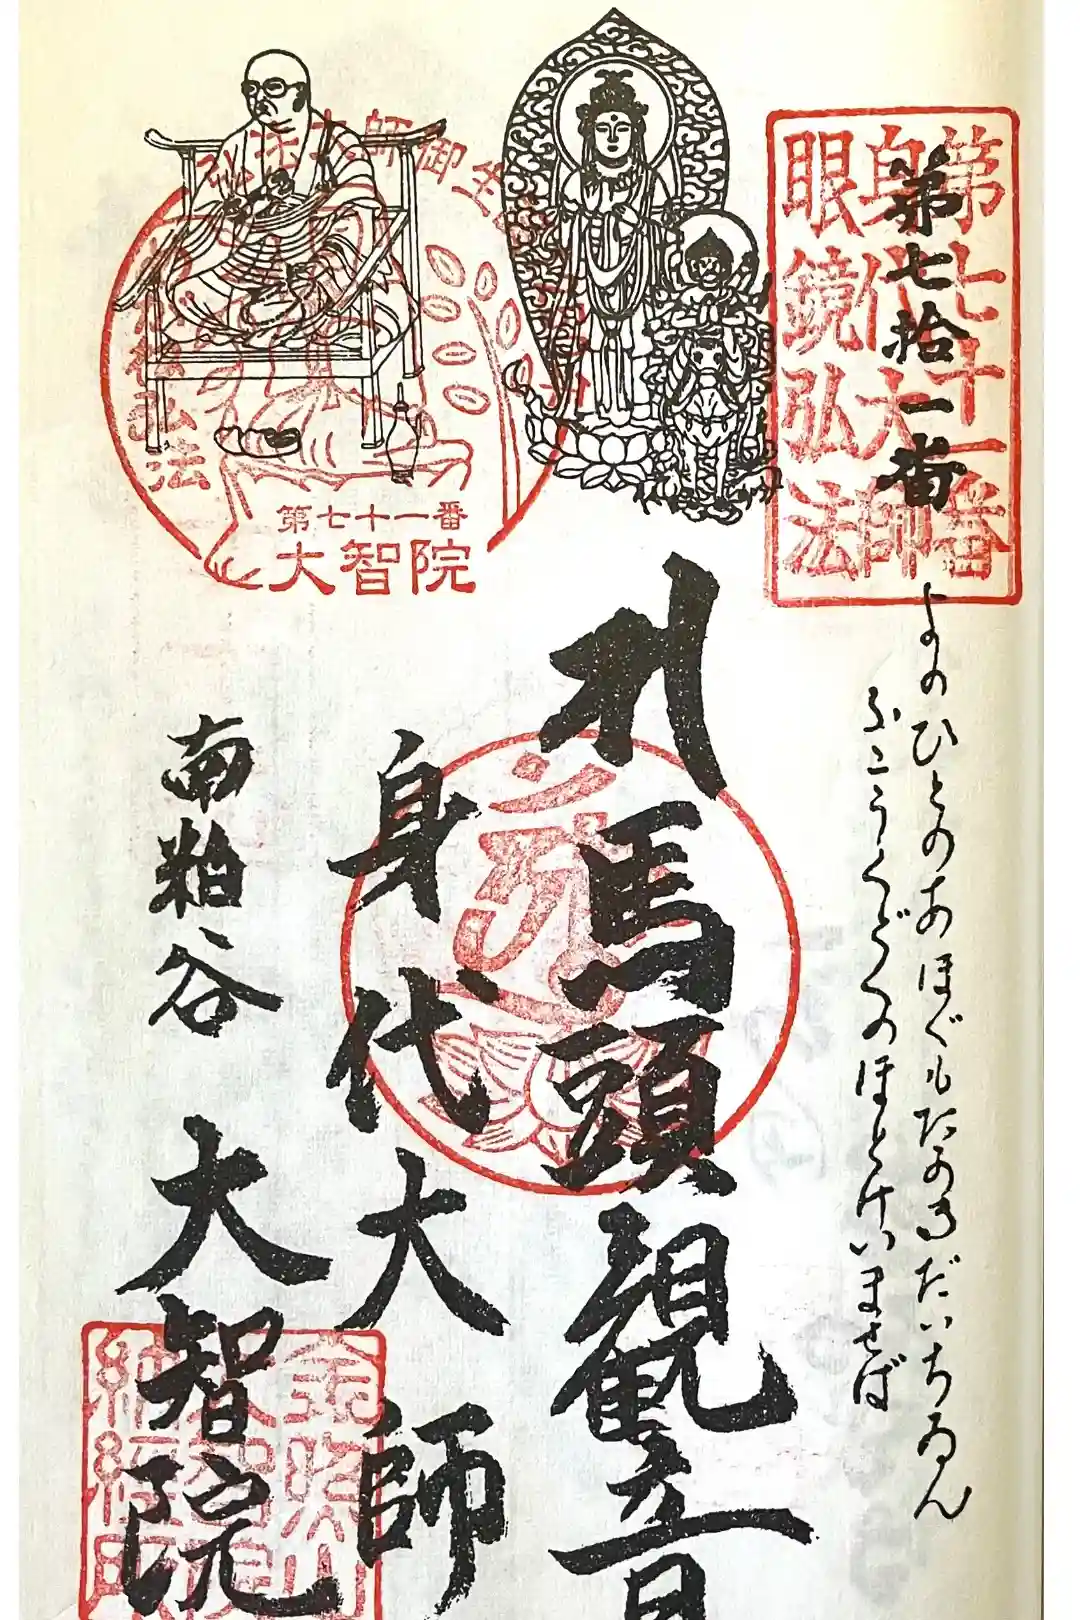 第七十一番
身代大師
眼鏡弘法
第七拾一番
よのひとのあほぐもたかきだいちゐん
ふこうくどくのほとけいませば
馬頭観音
身代大師
南粕谷
大智院
弘法大師御生
弘法
第七十一番
大智院
金照山
納経